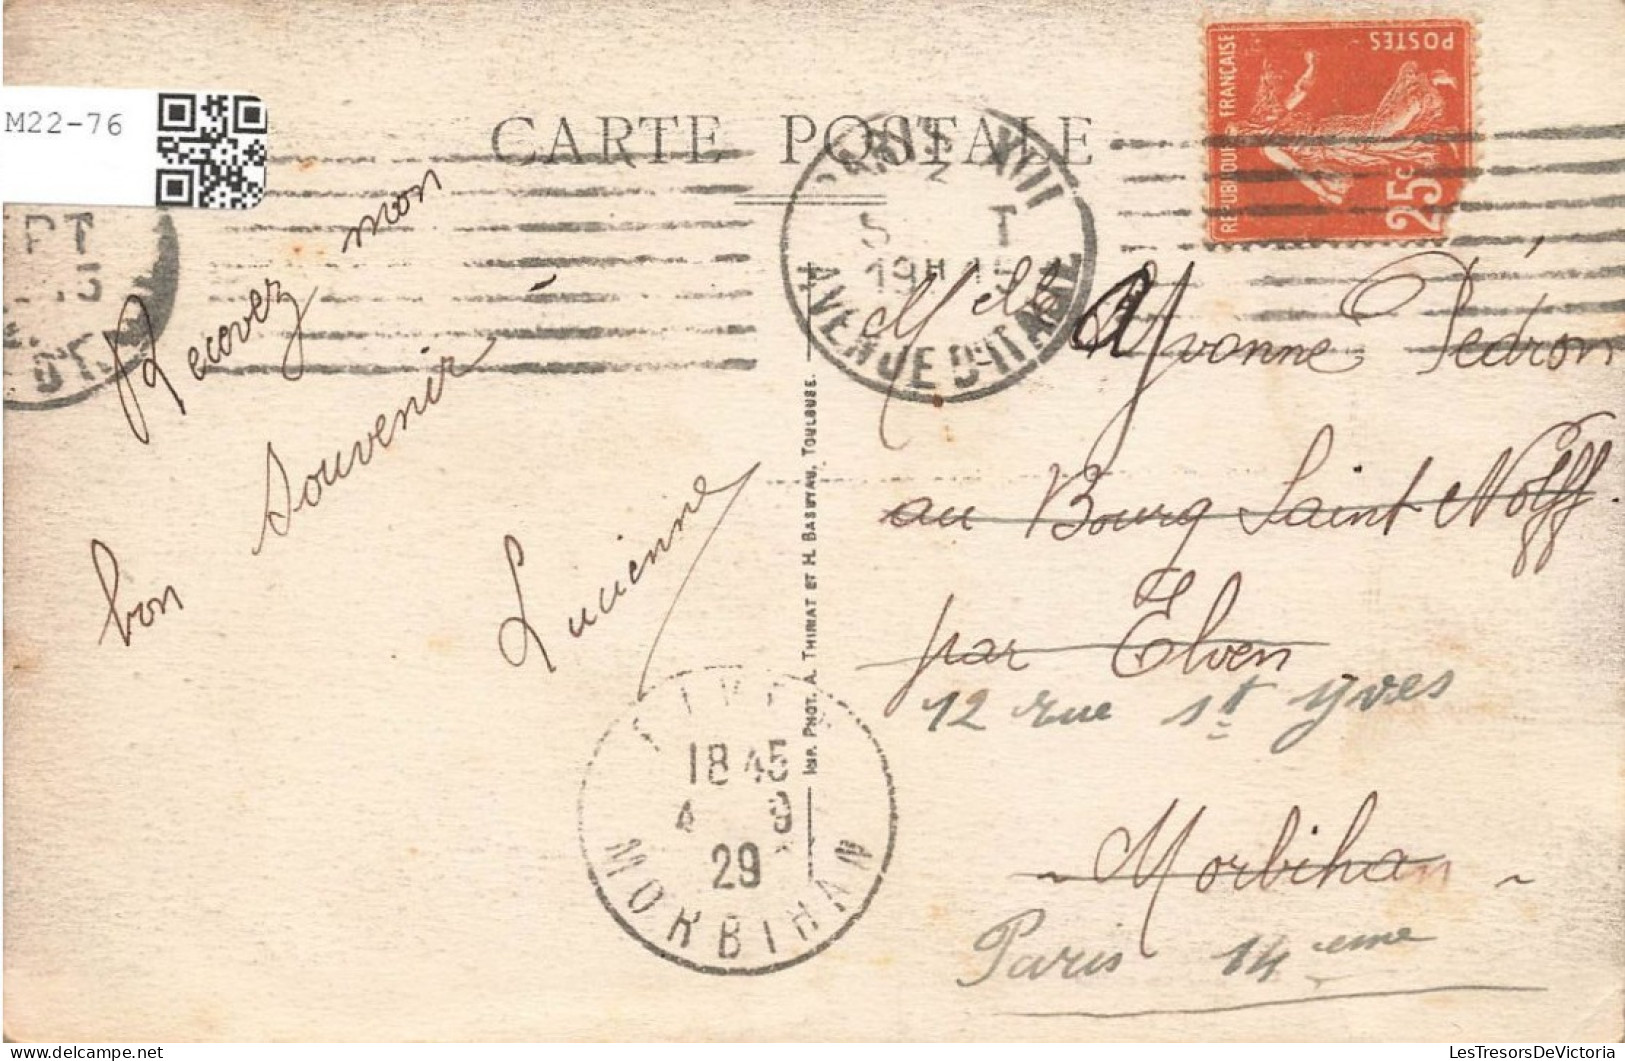 M22-76
CARTE POSTALE
POSTES
REPUBLIQUE FRANÇAISE
25c
PARIS XIII
AVENUE D'ITALIE
19H15
Recevez mon
bon souvenir
Lucienne
IMP. PHOT. A. THIRIAT ET H. BASUYAU, TOULOUSE.
Melle Yvonne Pédron
au Bourg Saint Nolff.
par Elven
12 rue St yves
- Morbihan -
Paris 14eme
ELVEN
18 45
4 9
29
MORBIHAN
LesTresorsDeVictoria